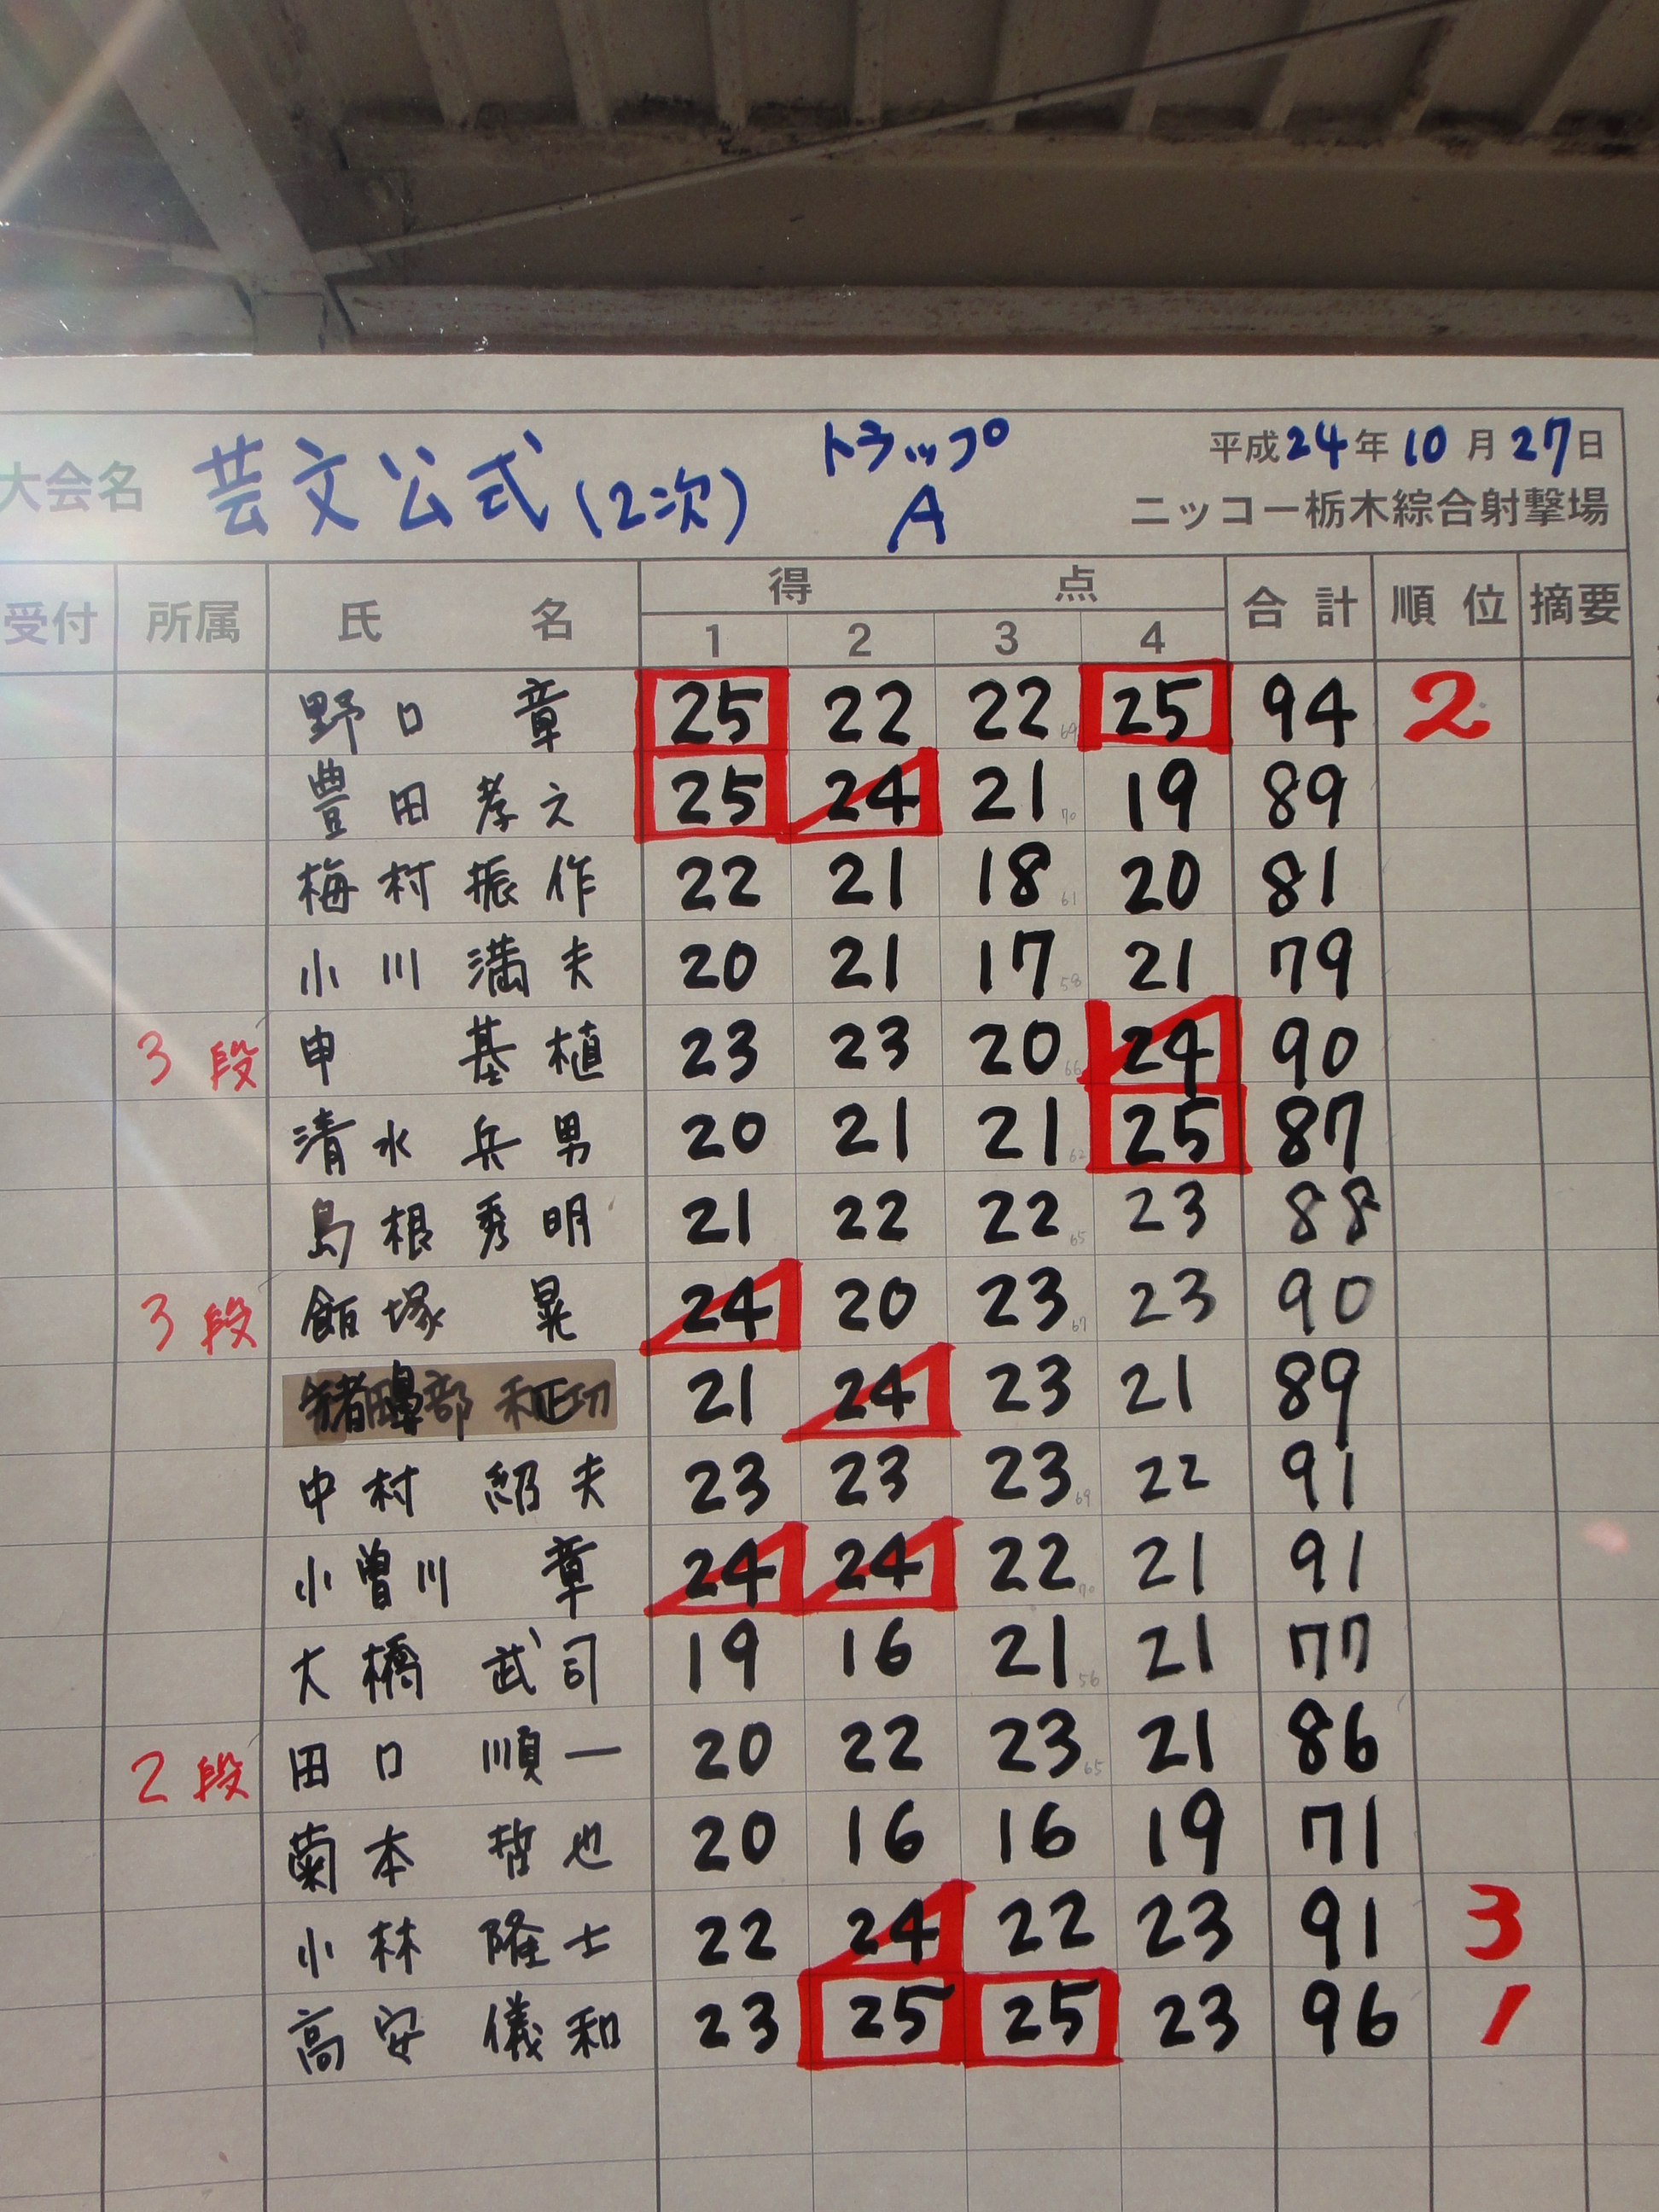 大会名 芸文公式(2次) トラップ A 平成24年10月27日
ニッコー栃木綜合射撃場
受付 所属 氏名 得点 合計 順位 摘要
1 2 3 4
野口 章 25 22 22 69 25 94 2
豊田孝之 25 24 21 70 19 89
梅村振作 22 21 18 61 20 81
小川満夫 20 21 17 58 21 79
3段 申 基植 23 23 20 66 24 90
清水兵男 20 21 21 62 25 87
島根秀明 21 22 22 65 23 88
3段 飯塚 晃 24 20 23 67 23 90
21 24 23 21 89
中村紹夫 23 23 23 69 22 91
小曽川 章 24 24 22 70 21 91
大橋武司 19 16 21 56 21 77
2段 田口順一 20 22 23 65 21 86
菊本哲也 20 16 16 19 71
小林隆士 22 24 22 23 91 3
高安儀和 23 25 25 23 96 1